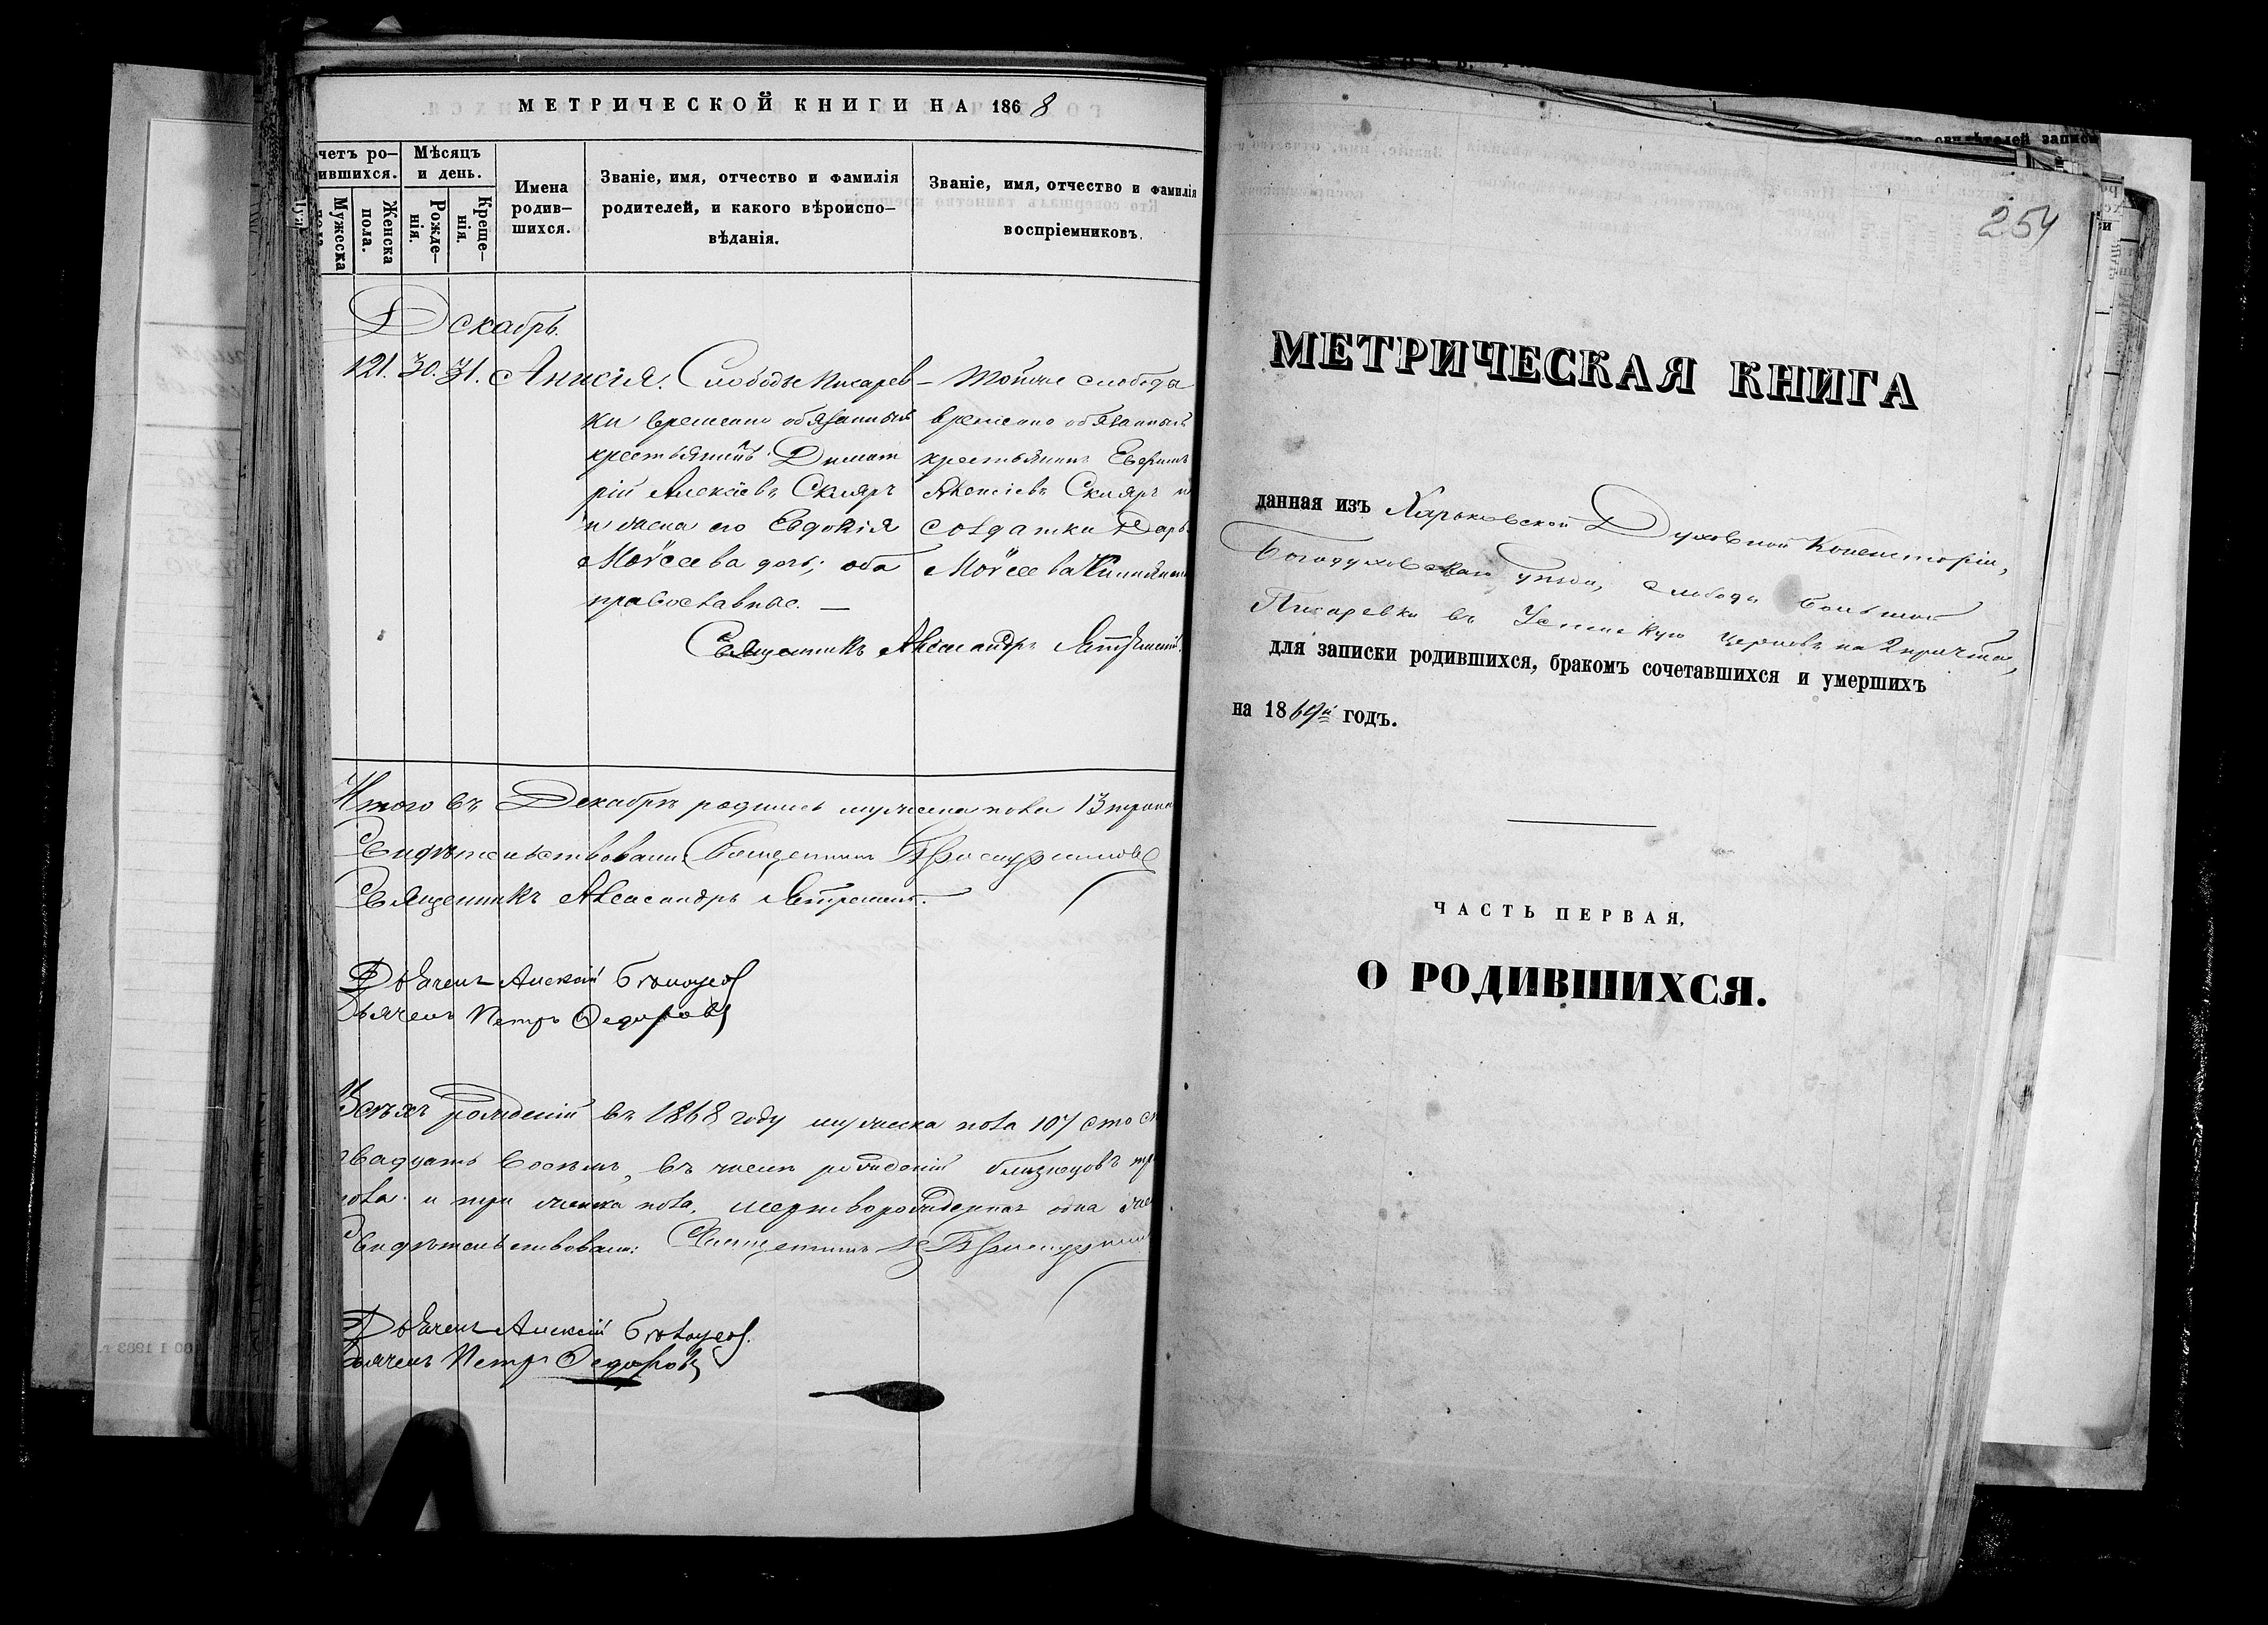 МЕТРИЧЕСКОЙ КНИГИ НА 1868
четъ ро-
ившихся.
Мужеска
Женска
пола.
Мѣсяцъ
и день.
Рожде-
нія.
Креще-
нія.
Имена
родив-
шихся.
Званіе, имя, отчество и фамилія
родителей, и какого вѣроиспо-
вѣданія.
Званіе, имя, отчество и фамилія
воспріемниковъ.
Декабрь.
121. 30. 31. Анисія.
Слободы Писарев-
ки временно обязанный
крестьянинъ Димит
рій Алексіевъ Скляръ
и жена его Евдокія
Моѵсеева дочь; оба
православные. —
Тойже слободы
временно обязанный
крестьянинъ
Алексіевъ Скляръ и
солдатка Дарья
Моѵсеева
Священникъ Александръ
Итого въ Декабрѣ родились мужеска пола 13
Свидѣтельствовали: Священникъ
Священникъ Александръ
Дьячекъ Алексій Бѣлоусов
Дьячекъ Петръ Федоровъ
Всѣхъ рожденій въ 1868 году мужеска пола 107 сто
двадцать восемь, въ числѣ рожденій близнецовъ
пола и три женска пола, мертворожденная одна
Свидѣтельствовали: Священникъ
Дьячекъ Алексій Бѣлоусов.
Дьячекъ Петръ Федоровъ
254
МЕТРИЧЕСКАЯ КНИГА
данная изъ Харьковской Духовной Консисторіи,
Богодуховскаго уѣзда, слободы Большой
Писаревки въ Успенскую церковь на 2 причта,
для записки родившихся, бракомъ сочетавшихся и умершихъ
на 1869й годъ.
ЧАСТЬ ПЕРВАЯ,
О РОДИВШИХСЯ.